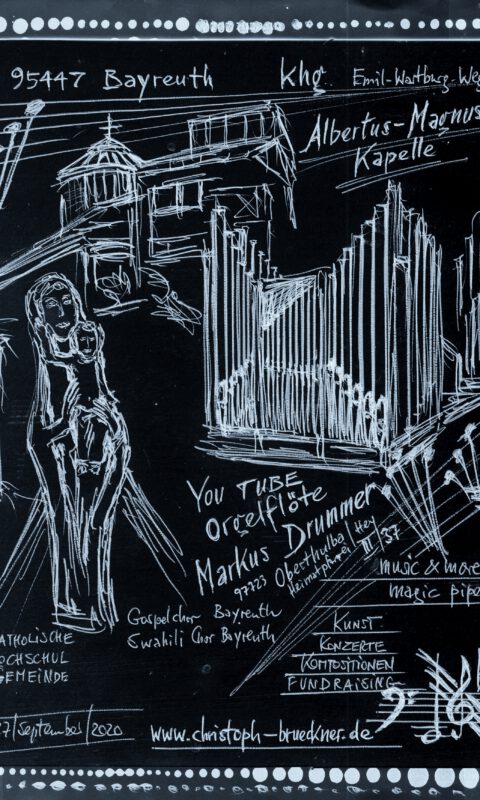 95447 Bayreuth khg Emil-Wartburg-Weg
Albertus-Magnus
Kapelle
YOU TUBE
Orgelflöte
Markus Drummer
97723 Oberthulba
Heimatpfarrei
Hey
II
37
music & more
magic pipe
Gospelchor Bayreuth
Swahili Chor Bayreuth
KUNST
KONZERTE
KOMPOSITIONEN
FUNDRAISING
ATHOLISCHE
OCHSCHUL
GEMEINDE
27/september/2020
www.christoph-brueckner.de